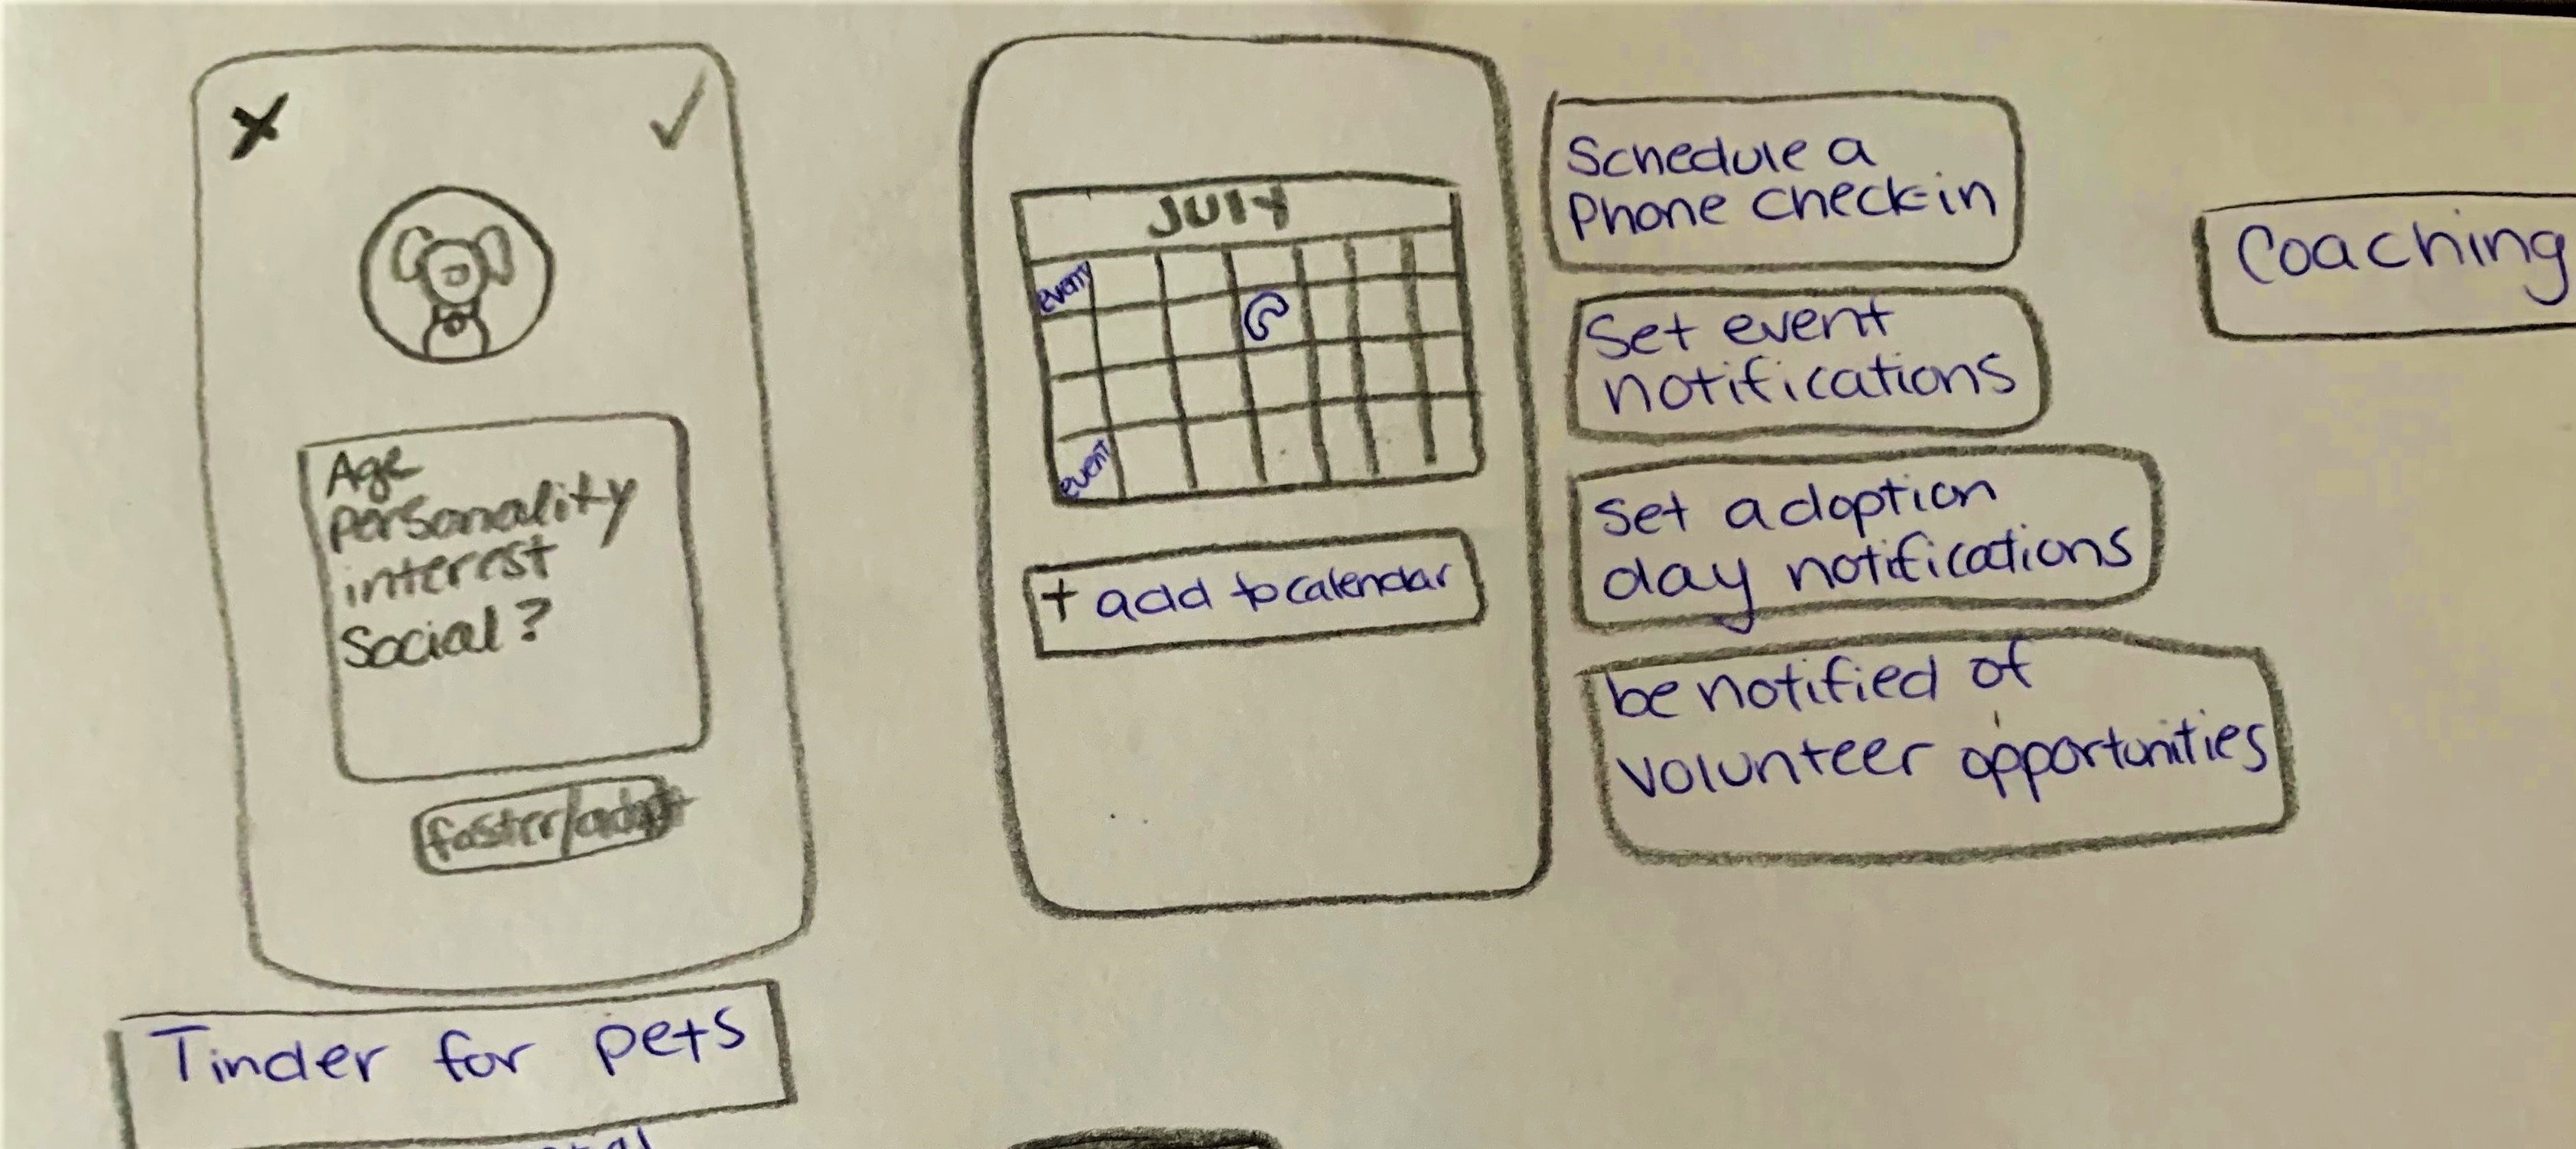 Age
personality
interest
Social?
foster/adopt
Tinder for pets
JULY
event
event
+ add to calendar
Schedule a
Phone check-in
Set event
notifications
set adoption
day notifications
be notified of
volunteer opportunities
Coaching